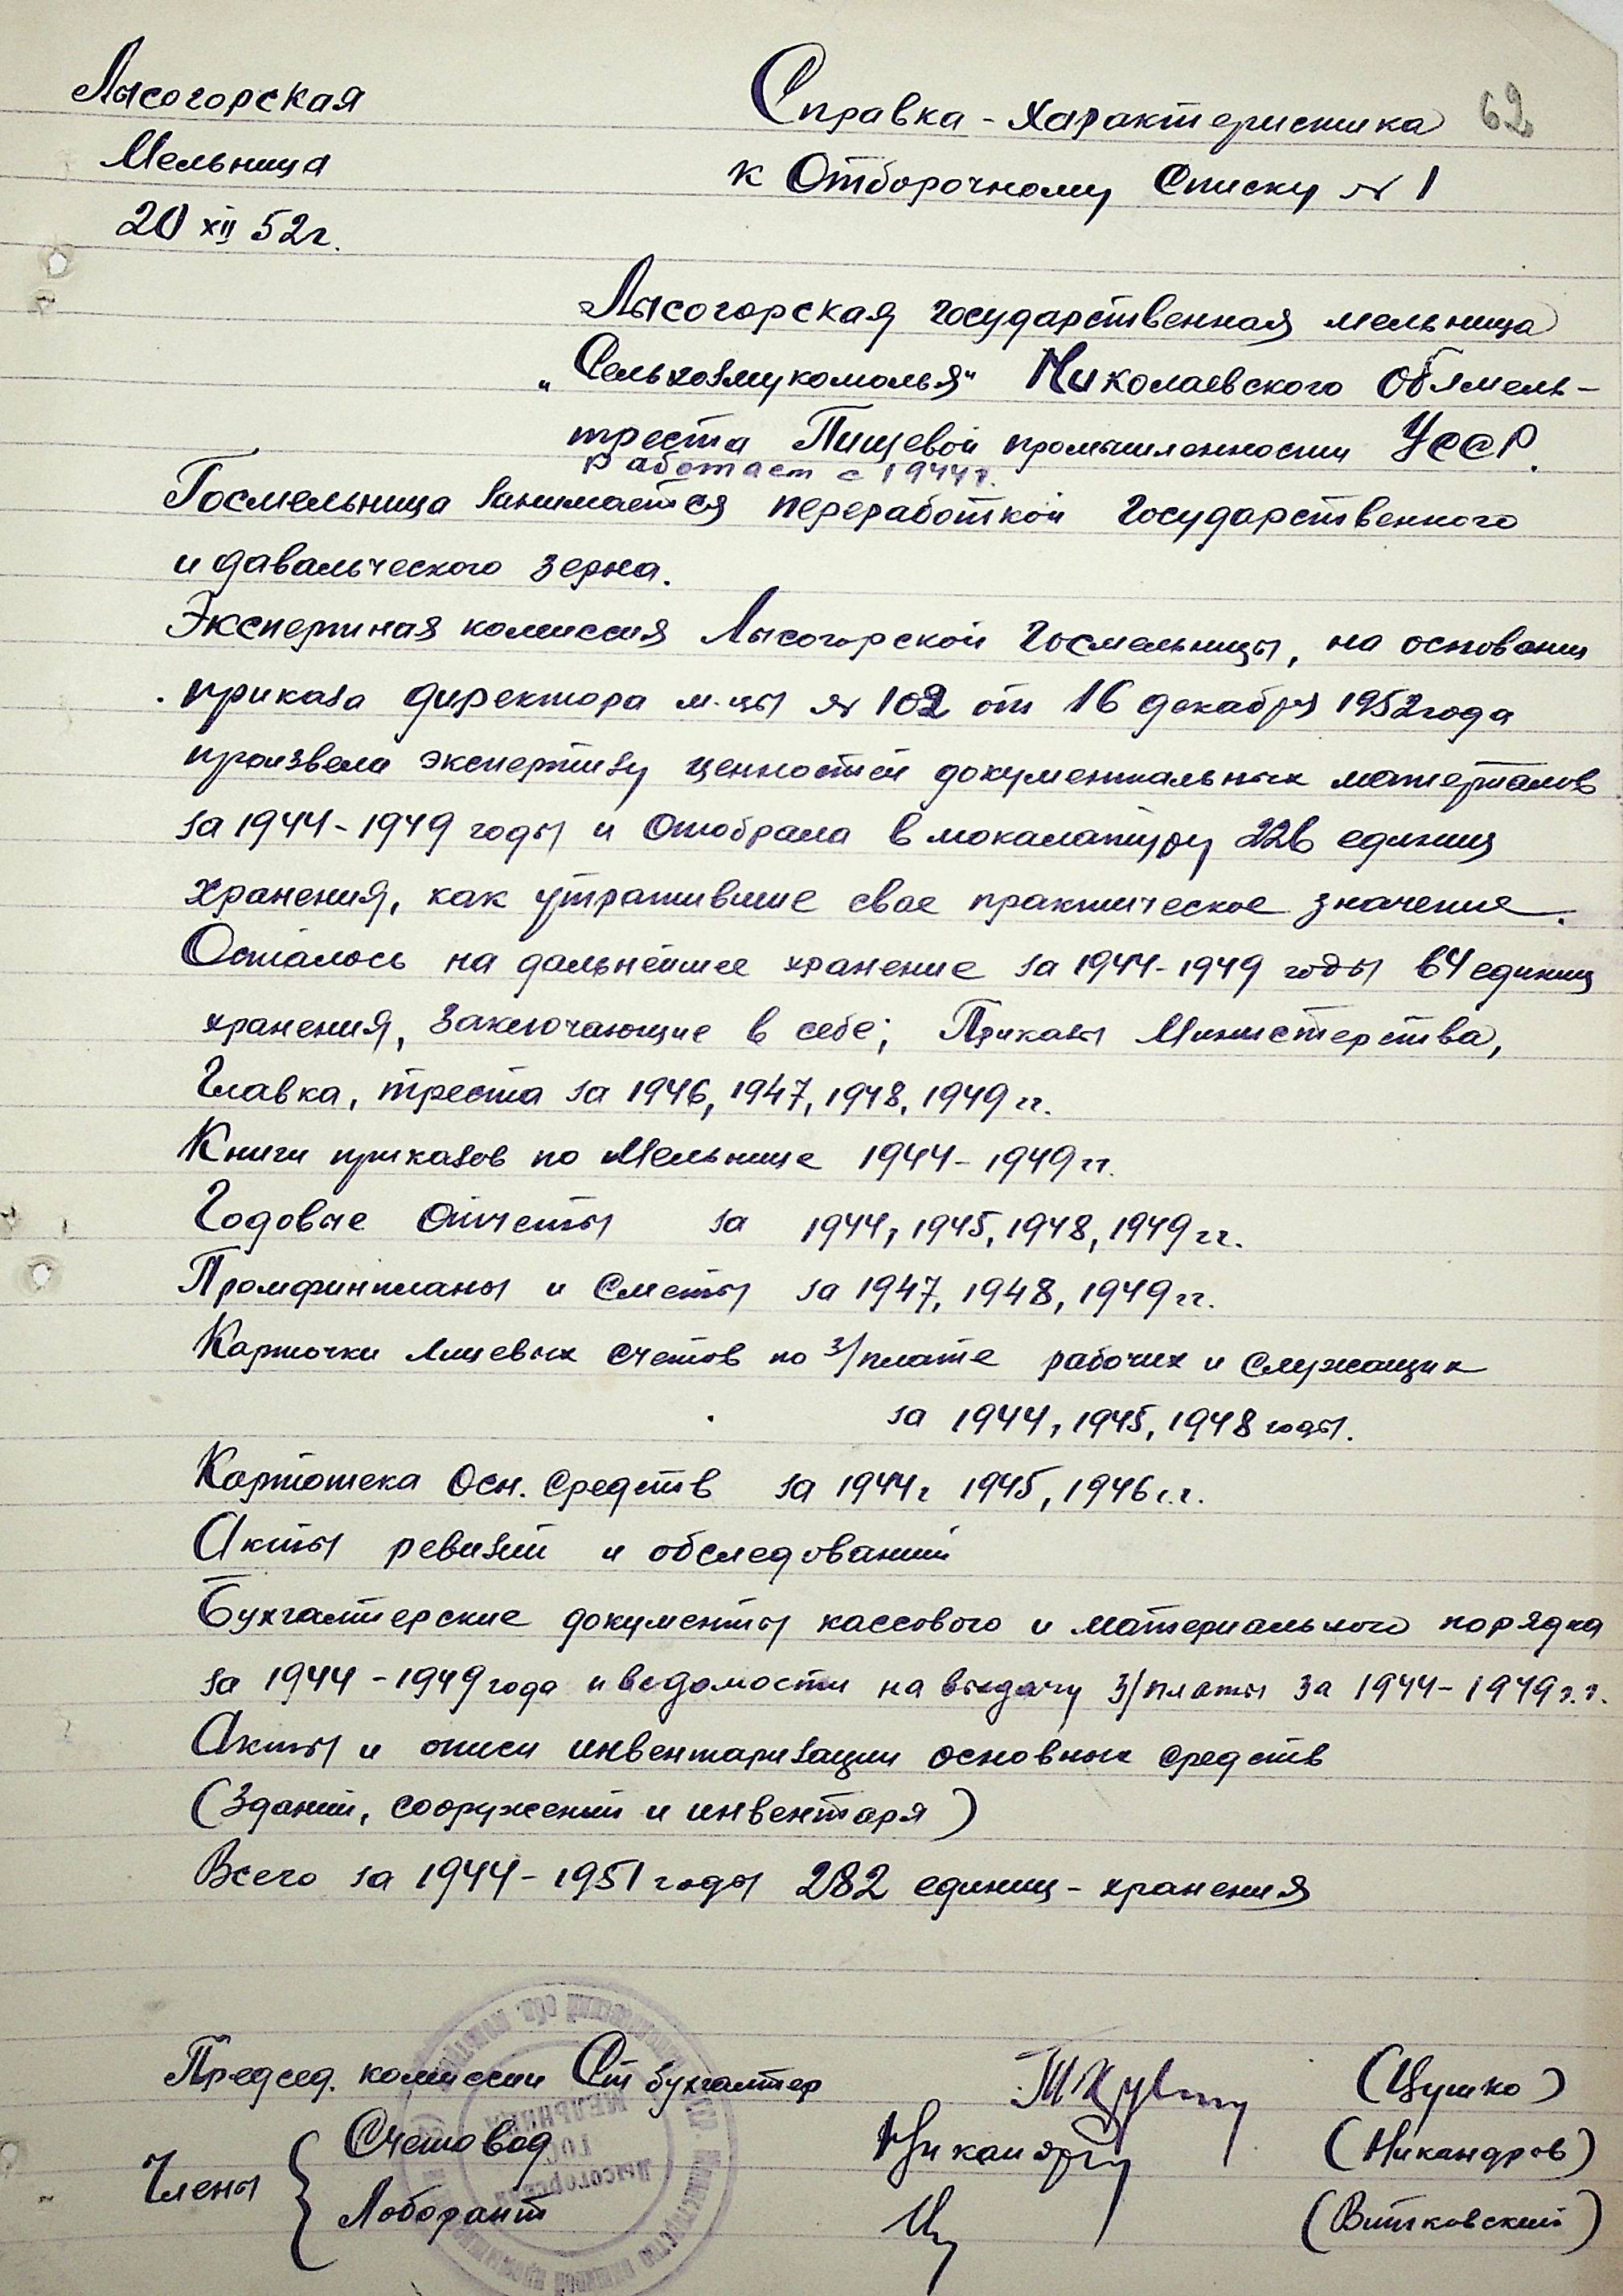 Лысогорская
Мельница
20 XII 52г.
Справка - характеристика 62
к Отборочному Списку № 1
Лысогорская государственная мельница
„Сельхозмукомолья" Николаевского Облмель-
треста Пищевой промышленности УССР.
работает с 1944 г.
Госмельница занимается переработкой Государственного
и давальческого зерна.
Экспертная комиссия Лысогорской Госмельницы, на основании
приказа директора м-цы № 102 от 16 декабря 1952 года
произвела экспертизу ценностей документальных материалов
за 1944-1949 годы и отобрала в мокалатуру 226 единиц
хранения, как утратившие свое практическое значение.
Осталось на дальнейшее хранение за 1944-1949 годы 64 единиц
хранения, заключающие в себе; Приказы Министерства,
Главка, треста за 1946, 1947, 1948, 1949 гг.
Книги приказов по Мельнице 1944-1949 гг.
Годовые отчеты за 1944, 1945, 1948, 1949 гг.
Промфинпланы и Сметы за 1947, 1948, 1949 гг.
Карточки лицевых счетов по з/плате рабочих и служащих
за 1944, 1945, 1948 годы.
Картотека Осн. средств за 1944г 1945, 1946 г.г.
Акты ревизий и обследований
Бухгалтерские документы кассового и материального порядка
за 1944-1949 года и ведомости на выдачу з/платы за 1944-1949 г.г.
Акты и описи инвентаризации основных средств
(Зданий, сооружений и инвентаря)
Всего за 1944-1951 годы 282 единиц-хранения
Председ. комиссии Ст бухгалтер (Цушко)
Члены
Счетовод (Никандров)
Лаборант (Витковский)
Лысогорская
ГОС
МЕЛЬНИЦА